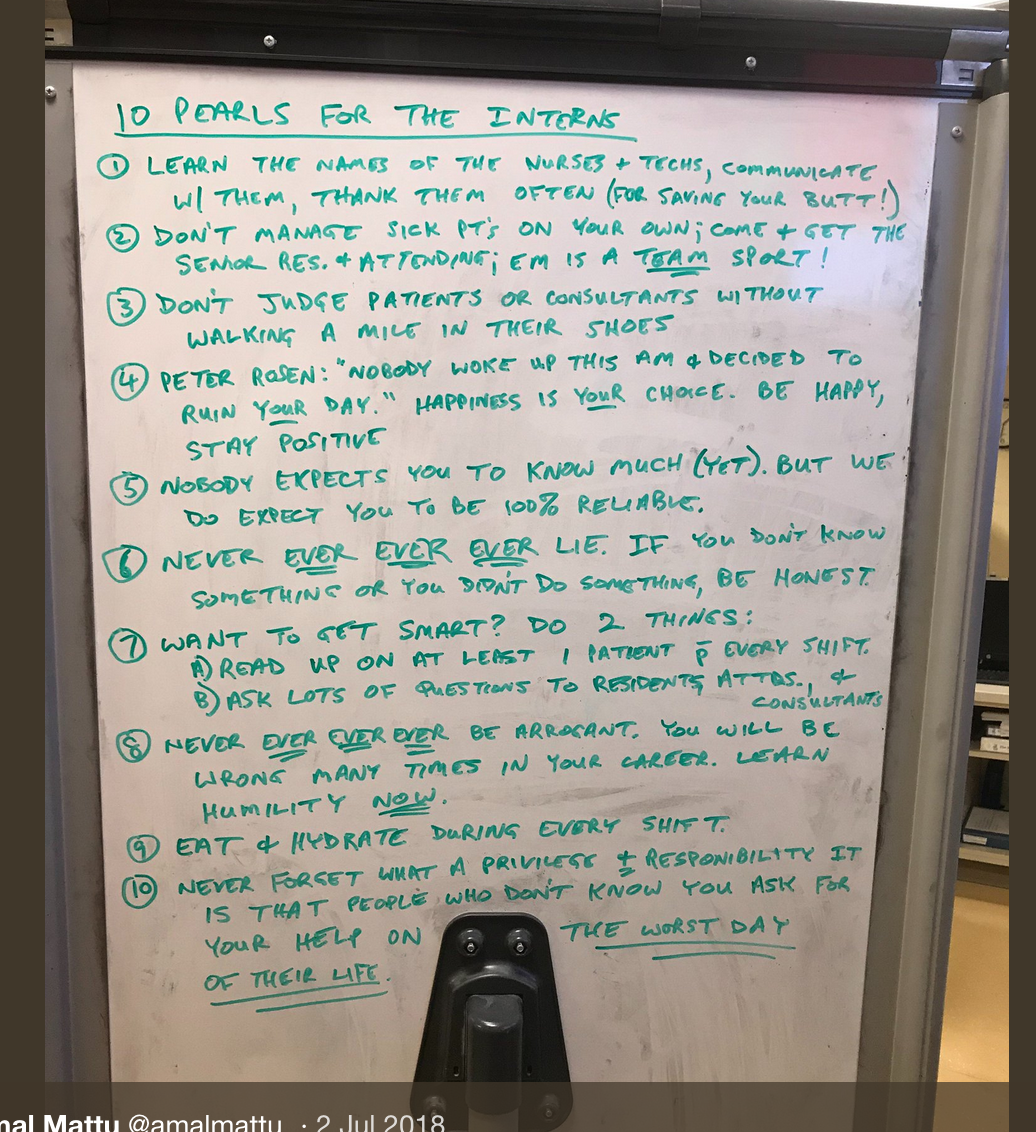 10 PEARLS FOR THE INTERNS
① LEARN THE NAMES OF THE NURSES + TECHS, COMMUNICATE
W/ THEM, THANK THEM OFTEN (FOR SAVING YOUR BUTT!)
② DON'T MANAGE SICK PT'S ON YOUR OWN; COME + GET THE
SENIOR RES. + ATTENDING; EM IS A TEAM SPORT!
③ DON'T JUDGE PATIENTS OR CONSULTANTS WITHOUT
WALKING A MILE IN THEIR SHOES
④ PETER ROSEN: "NOBODY WOKE UP THIS AM & DECIDED TO
RUIN YOUR DAY." HAPPINESS IS YOUR CHOICE. BE HAPPY,
STAY POSITIVE
⑤ NOBODY EXPECTS YOU TO KNOW MUCH (YET). BUT WE
DO EXPECT YOU TO BE 100% RELIABLE.
⑥ NEVER EVER EVER EVER LIE. IF YOU DON'T KNOW
SOMETHING OR YOU DIDN'T DO SOMETHING, BE HONEST.
⑦ WANT TO GET SMART? DO 2 THINGS:
A) READ UP ON AT LEAST 1 PATIENT p̄ EVERY SHIFT.
B) ASK LOTS OF QUESTIONS TO RESIDENTS, ATTDS., &
CONSULTANTS
⑧ NEVER EVER EVER EVER BE ARROGANT. YOU WILL BE
WRONG MANY TIMES IN YOUR CAREER. LEARN
HUMILITY NOW.
⑨ EAT & HYDRATE DURING EVERY SHIFT.
⑩ NEVER FORGET WHAT A PRIVILEGE + RESPONIBILITY IT
IS THAT PEOPLE WHO DON'T KNOW YOU ASK FOR
YOUR HELP ON THE WORST DAY
OF THEIR LIFE.
mal Mattu @amalmattu · 2 Jul 2018